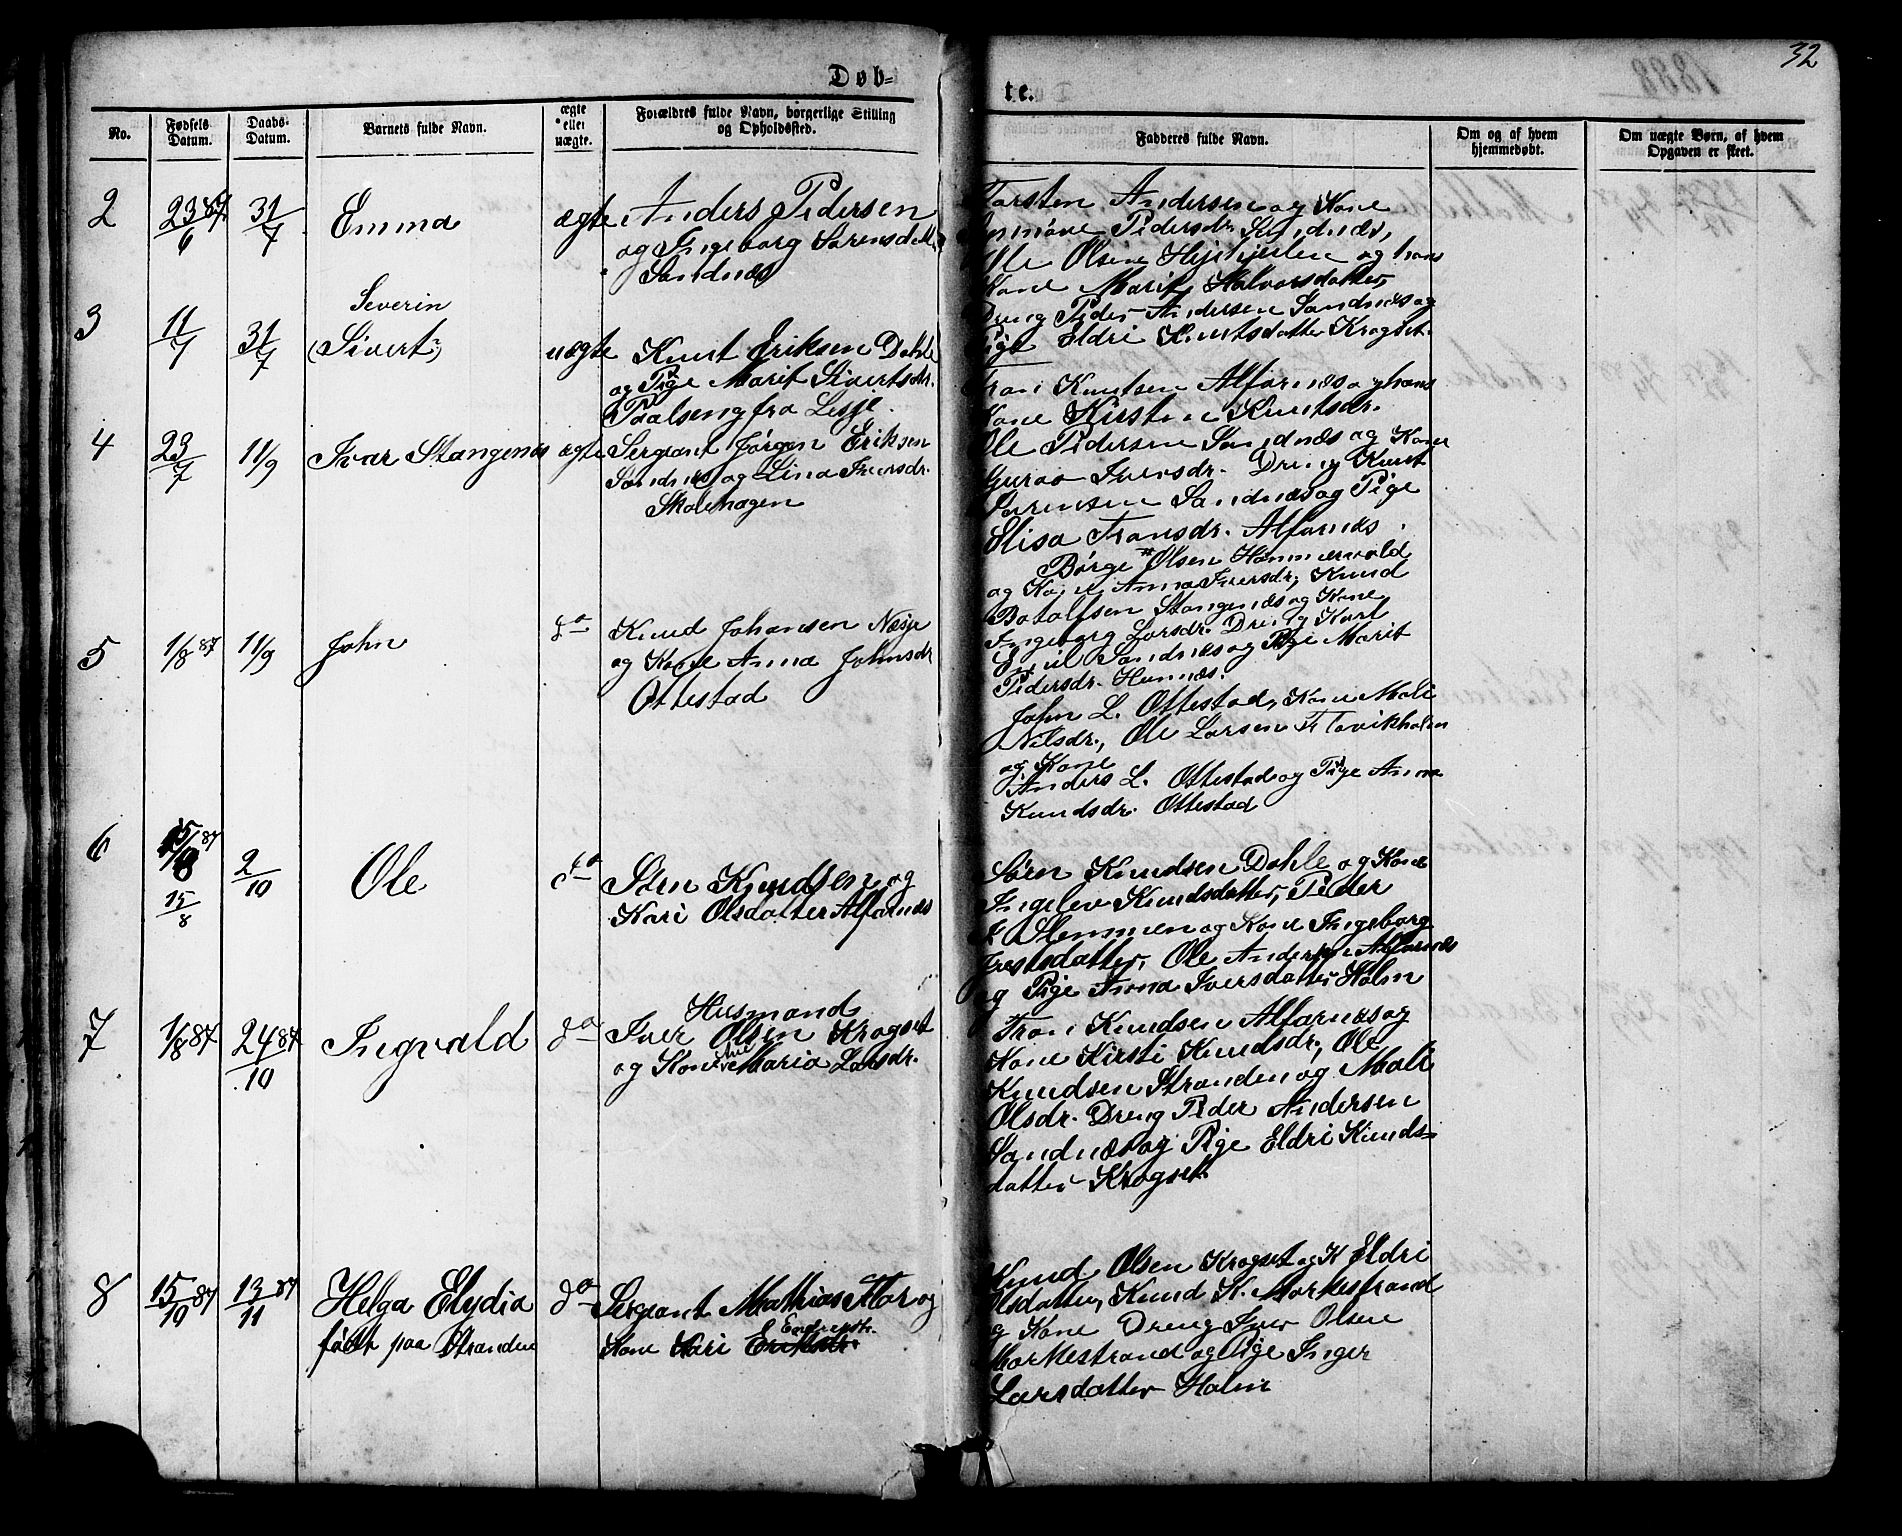 32
Døb-
te.
No.
Fødsels Datum.
Daabs-Datum.
Barnets fulde Navn.
ægte eller uægte.
Forældres fulde Navn, borgerlige Stilling og Opholdssted.
Fadderes fulde Navn.
Om og af hvem hjemmedøbt.
Om uægte Børn, af hvem Opgaven er skeet.
2
23/6 87
31/7
Emma
ægte
Anders Pedersen
og Ingeborg Sørensd
Sandnæs
Torsten Andersen og Kone
Pedersdr. Sandnæs,
Ole Olsen og hans
Kone Marit Halvorsdatter,
Dreng Peder Andersen Sandnæs og
Pige Eldri Knutsdatter Krogset.
3
11/7
31/7
Severin
(Sivert)
uægte
Knut Eriksen Dahle
og Pige Marit Sivertsdr.
fra Lesje.
Tron Knutsen Alfarnæs og hans
Kone Kirsten Knutsdr.
Ole Pedersen Sandnæs og Kone
Guroo Iversdr. Dreng Knut
Sørensen Sandnæs og Pige
Elisa Tronsdr. Alfarnæs.
4
23/7
11/9
Ivar Stangenes
ægte
Sergeant Jørgen Eriksen
Sandnæs og Lina Iversdr.
Skolehagen
Børge Olsen Hammervold
og Kone Anna Iversdr, Knud
Botolfsen Stangenæs og Kone
Ingeborg Larsdr. Dreng Karl
Emil Sandnæs og Pige Marit
Pedersdr. Hunnæs.
5
1/8 87
11/9
John
do
Knud Johansen Næsje
og Kone Anna Johnsdr
Ottestad
John L. Ottestad, Kone Mali
Nilsdr., Ole Larsen Flovikholm
og Kone
Anders L. Ottestad og Pige Anne
Knudsdr. Ottestad
6
15/8
2/10
Ole
do
Sten Knudsen og
Kari Olsdatter Alfarnæs
Søren Knudsen Dahle og Kone
Ingelev Knudsdatter, Peder
Hemmen og Kone Ingeborg
Ole Andersen Alfarnæs
og Pige Anna Iversdatter Holm
7
1/8 87
24/10 87
Ingvald
do
Husmand
Iver Olsen Krogset
og Kone Maria Larsdr.
Tron Knudsen Alfarnæs og
Kone Kirsti Knudsdr, Ole
Knudsen Stranden og Mali
Olsdr. Dreng Peder Andersen
Sandnæs og Pige Eldri Knuds-
datter Krogset.
8
15/10 87
13/11 87
Helga Elydia
født paa Stranden
do
Sergeant Mathias Flor og
Endresdr.
Kone Kari
Knud Olsen Krogset og K Eldri
Olsdatter, Knud K. Morkestrand
og Kone Dreng Iver Olsen
Morkestrand og Pige Inger
Larsdatter Holm